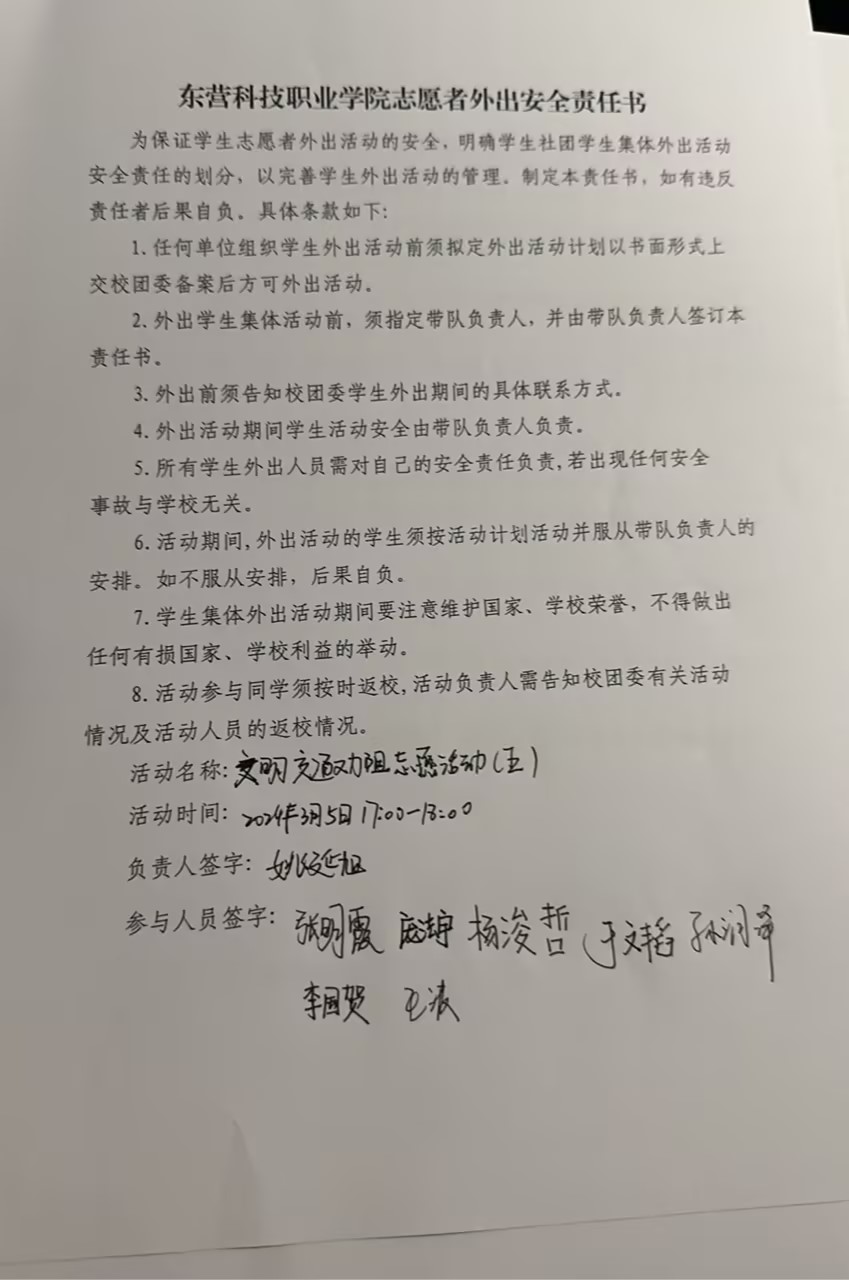 东营科技职业学院志愿者外出安全责任书
为保证学生志愿者外出活动的安全，明确学生社团学生集体外出活动
安全责任的划分，以完善学生外出活动的管理。制定本责任书，如有违反
责任者后果自负。具体条款如下:
1. 任何单位组织学生外出活动前须拟定外出活动计划以书面形式上
交校团委备案后方可外出活动。
2. 外出学生集体活动前，须指定带队负责人，并由带队负责人签订本
责任书。
3. 外出前须告知校团委学生外出期间的具体联系方式。
4. 外出活动期间学生活动安全由带队负责人负责。
5. 所有学生外出人员需对自己的安全责任负责,若出现任何安全
事故与学校无关。
6. 活动期间,外出活动的学生须按活动计划活动并服从带队负责人的
安排。如不服从安排，后果自负。
7. 学生集体外出活动期间要注意维护国家、学校荣誉，不得做出
任何有损国家、学校利益的举动。
8. 活动参与同学须按时返校,活动负责人需告知校团委有关活动
情况及活动人员的返校情况。
活动名称: 文明交通劝阻志愿活动(五)
活动时间: 2024年3月5日 17:00-18:00
负责人签字: 姚延旭
参与人员签字: 张明霞 杨浚哲 于文韬 孙润泽
李国贺